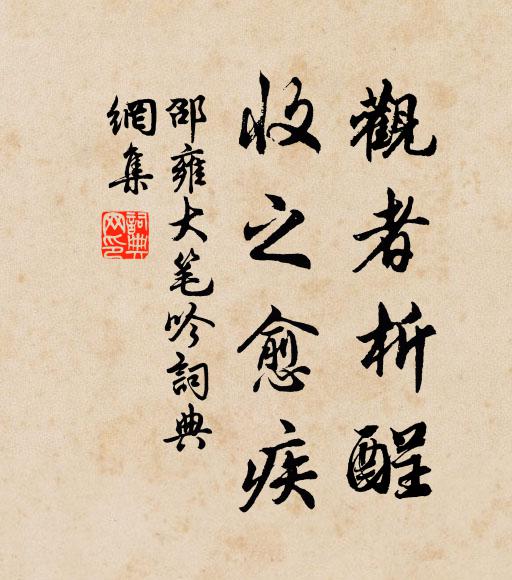 觀者析酲
收之愈疾
邵雍大笔吟詞典
網集
詞典
网印